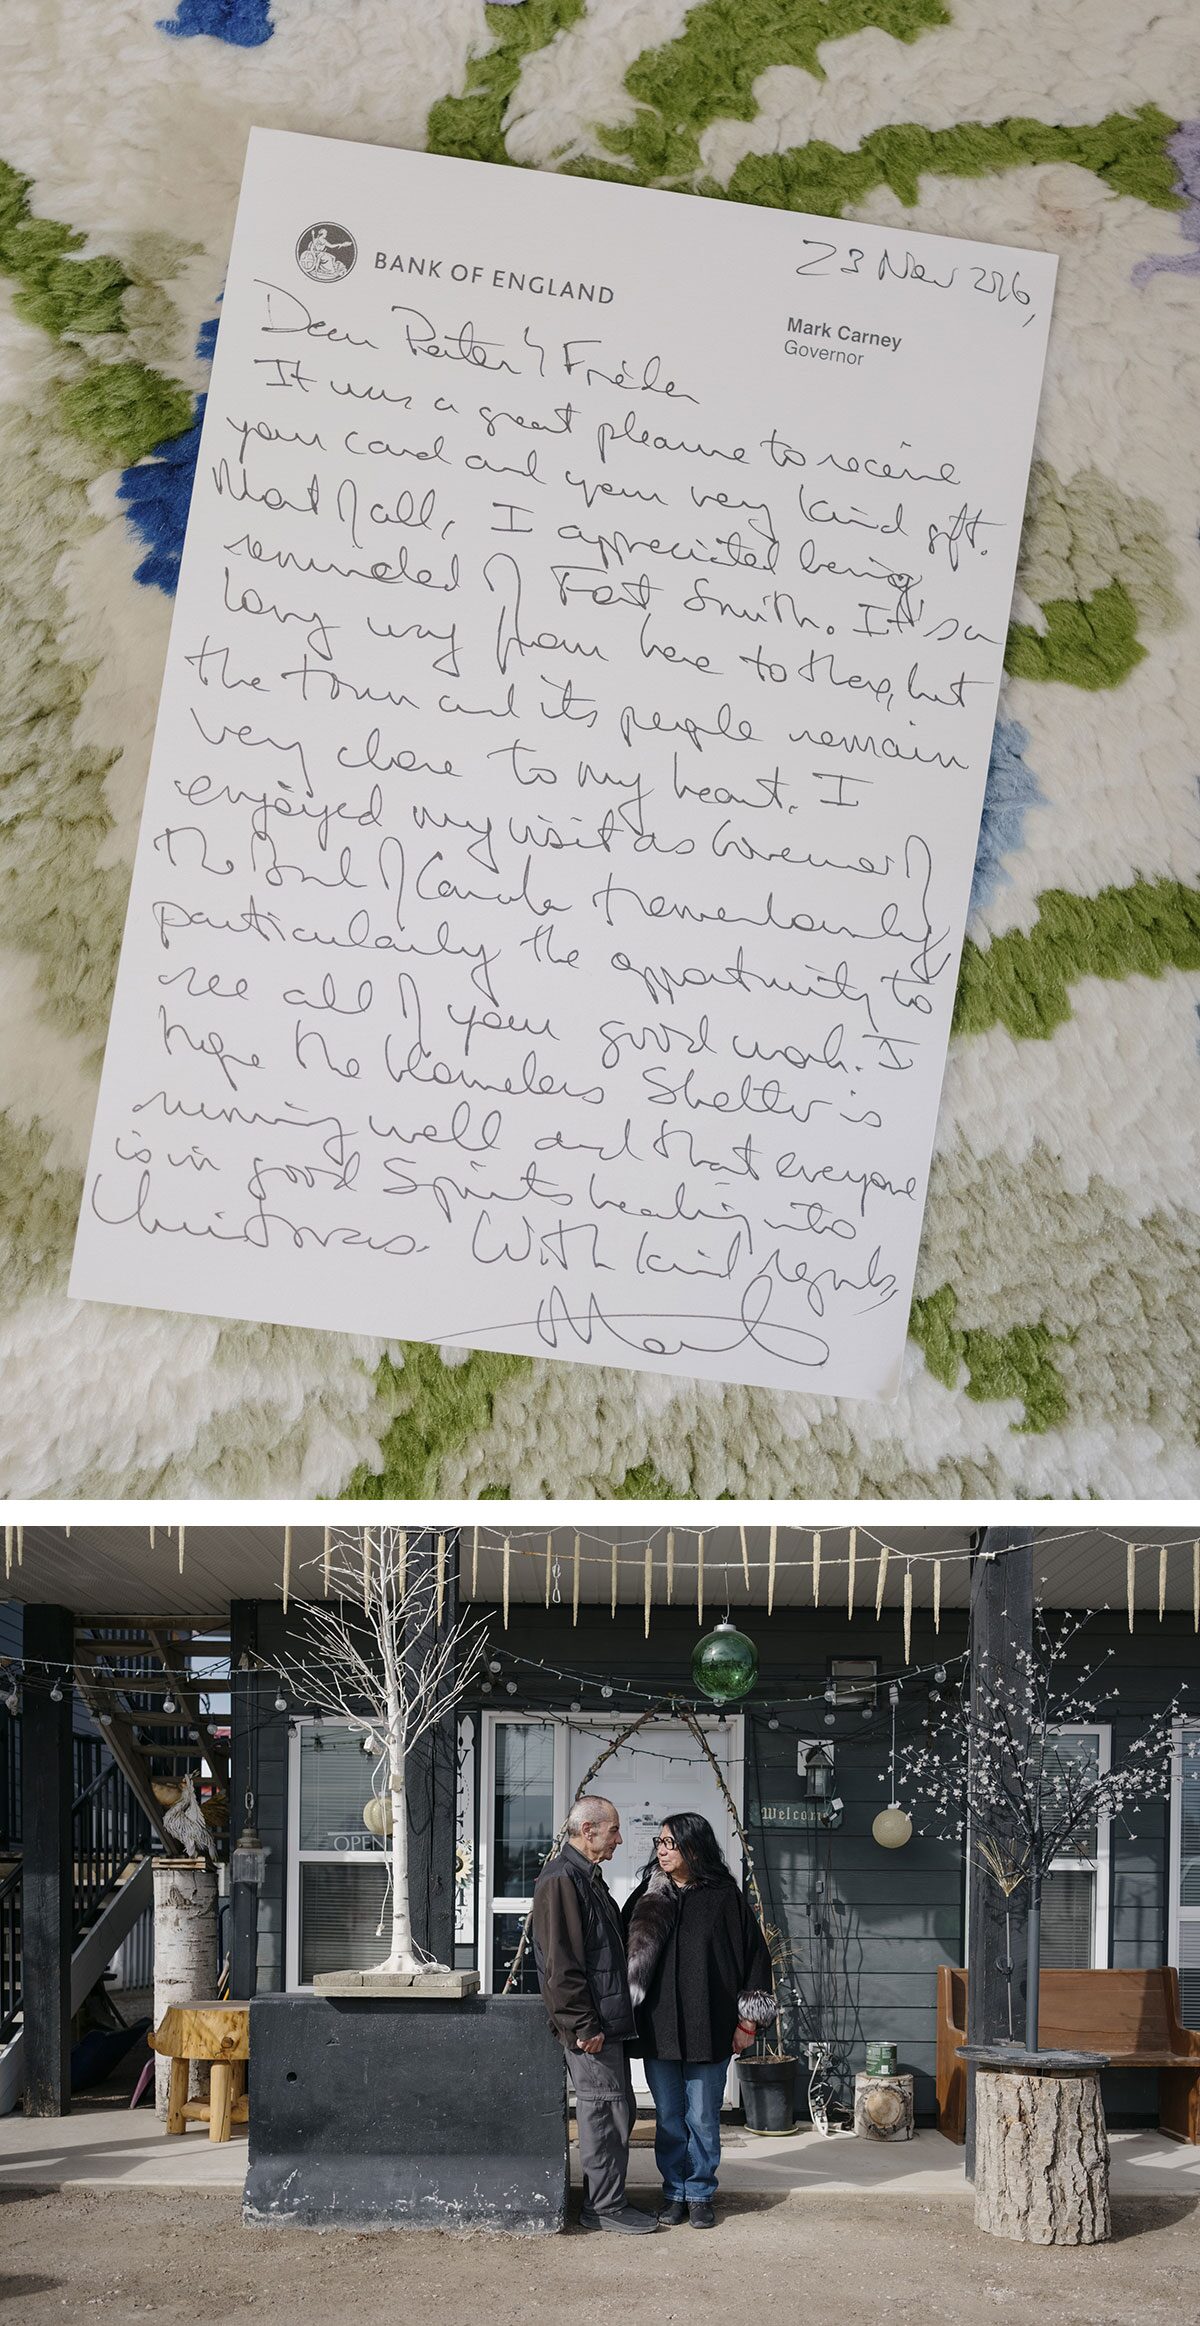 BANK OF ENGLAND
23 Nov 2016,
Mark Carney
Governor
Dear Peter & Frieda
It was a great pleasure to receive
your card and your very kind gift.
Most of all, I appreciated being
reminded of Fort Smith. It's a
long way from here to there, but
the town and its people remain
very close to my heart. I
enjoyed my visit as Governor of
the Bank of Canada tremendously,
particularly the opportunity to
see all of your good work. I
hope the Homeless Shelter is
running well and that everyone
is in good Spirits heading into
Christmas. With kind regards,
Mark
OPEN
WELCOME
Welcome